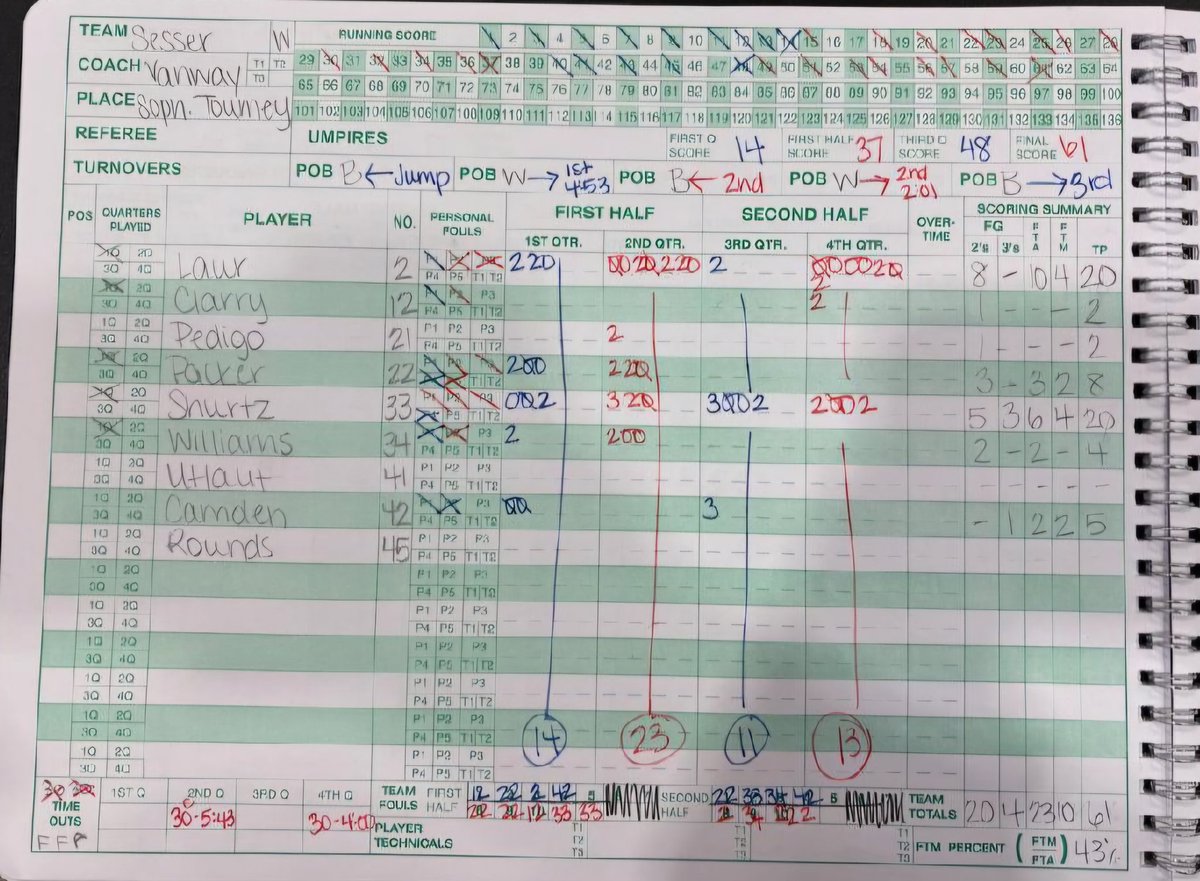 TEAM Sesser W RUNNING SCORE 1 2 3 4 5 6 7 8 9 10 11 12 13 14 15 16 17 18 19 20 21 22 23 24 25 26 27 28
COACH Vanway T1 T2 T3 29 30 31 32 33 34 35 36 37 38 39 40 41 42 43 44 45 46 47 48 49 50 51 52 53 54 55 56 57 58 59 60 61 62 63 64
65 66 67 68 69 70 71 72 73 74 75 76 77 78 79 80 81 82 83 84 85 86 87 88 89 90 91 92 93 94 95 96 97 98 99 100
PLACE Soph. Tourney 101 102 103 104 105 106 107 108 109 110 111 112 113 114 115 116 117 118 119 120 121 122 123 124 125 126 127 128 129 130 131 132 133 134 135 136
REFEREE UMPIRES FIRST Q SCORE 14 FIRST HALF SCORE 37 THIRD Q SCORE 48 FINAL SCORE 61
TURNOVERS POB B ← Jump POB W → 1st 4:53 POB B ← 2nd POB W → 2nd 2:01 POB B → 3rd
POS QUARTERS PLAYED PLAYER NO. PERSONAL FOULS FIRST HALF SECOND HALF OVER-TIME SCORING SUMMARY
1ST QTR. 2ND QTR. 3RD QTR. 4TH QTR. FG 2's 3's FTA FTM TP
1Q 2Q 3Q 4Q Laur 2 P4 P5 T1 T2 220 0020220 2 000020 2 8 - 10 4 20
1Q 2Q 3Q 4Q Clarry 12 P1 P2 P3 P4 P5 T1 T2 2 1 - - - 2
1Q 2Q 3Q 4Q Pedigo 21 P1 P2 P3 P4 P5 T1 T2 2 1 - - - 2
1Q 2Q 3Q 4Q Packer 22 T1 T2 200 220 3 - 3 2 8
1Q 2Q 3Q 4Q Shurtz 33 P1 P2 P3 P5 T1 T2 002 320 3002 2002 5 3 6 4 20
1Q 2Q 3Q 4Q Williams 34 P3 P4 P5 T1 T2 2 200 2 - 2 - 4
1Q 2Q 3Q 4Q Utlaut 41 P1 P2 P3 P4 P5 T1 T2 - - - - -
1Q 2Q 3Q 4Q Camden 42 P3 P4 P5 T1 T2 00 3 - 1 2 2 5
1Q 2Q 3Q 4Q Rounds 45 P1 P2 P3 P4 P5 T1 T2
1Q 2Q 3Q 4Q P1 P2 P3 P4 P5 T1 T2
1Q 2Q 3Q 4Q P1 P2 P3 P4 P5 T1 T2
1Q 2Q 3Q 4Q P1 P2 P3 P4 P5 T1 T2
1Q 2Q 3Q 4Q P1 P2 P3 P4 P5 T1 T2
1Q 2Q 3Q 4Q P1 P2 P3 P4 P5 T1 T2 14 23 11 13
1Q 2Q 3Q 4Q P1 P2 P3 P4 P5 T1 T2
30 30 TIME OUTS 1ST Q 2ND Q 3RD Q 4TH Q TEAM FOULS FIRST HALF 12 22 2 42 5 SECOND HALF 22 33 34 42 5 TEAM TOTALS 20 4 23 10 61
30-5:43 30-4:00 22 22 12 33 33
FFP PLAYER TECHNICALS T1 T2 T3 T1 T2 T3 T1 T2 T3 FTM PERCENT (FTM/FTA) 43%